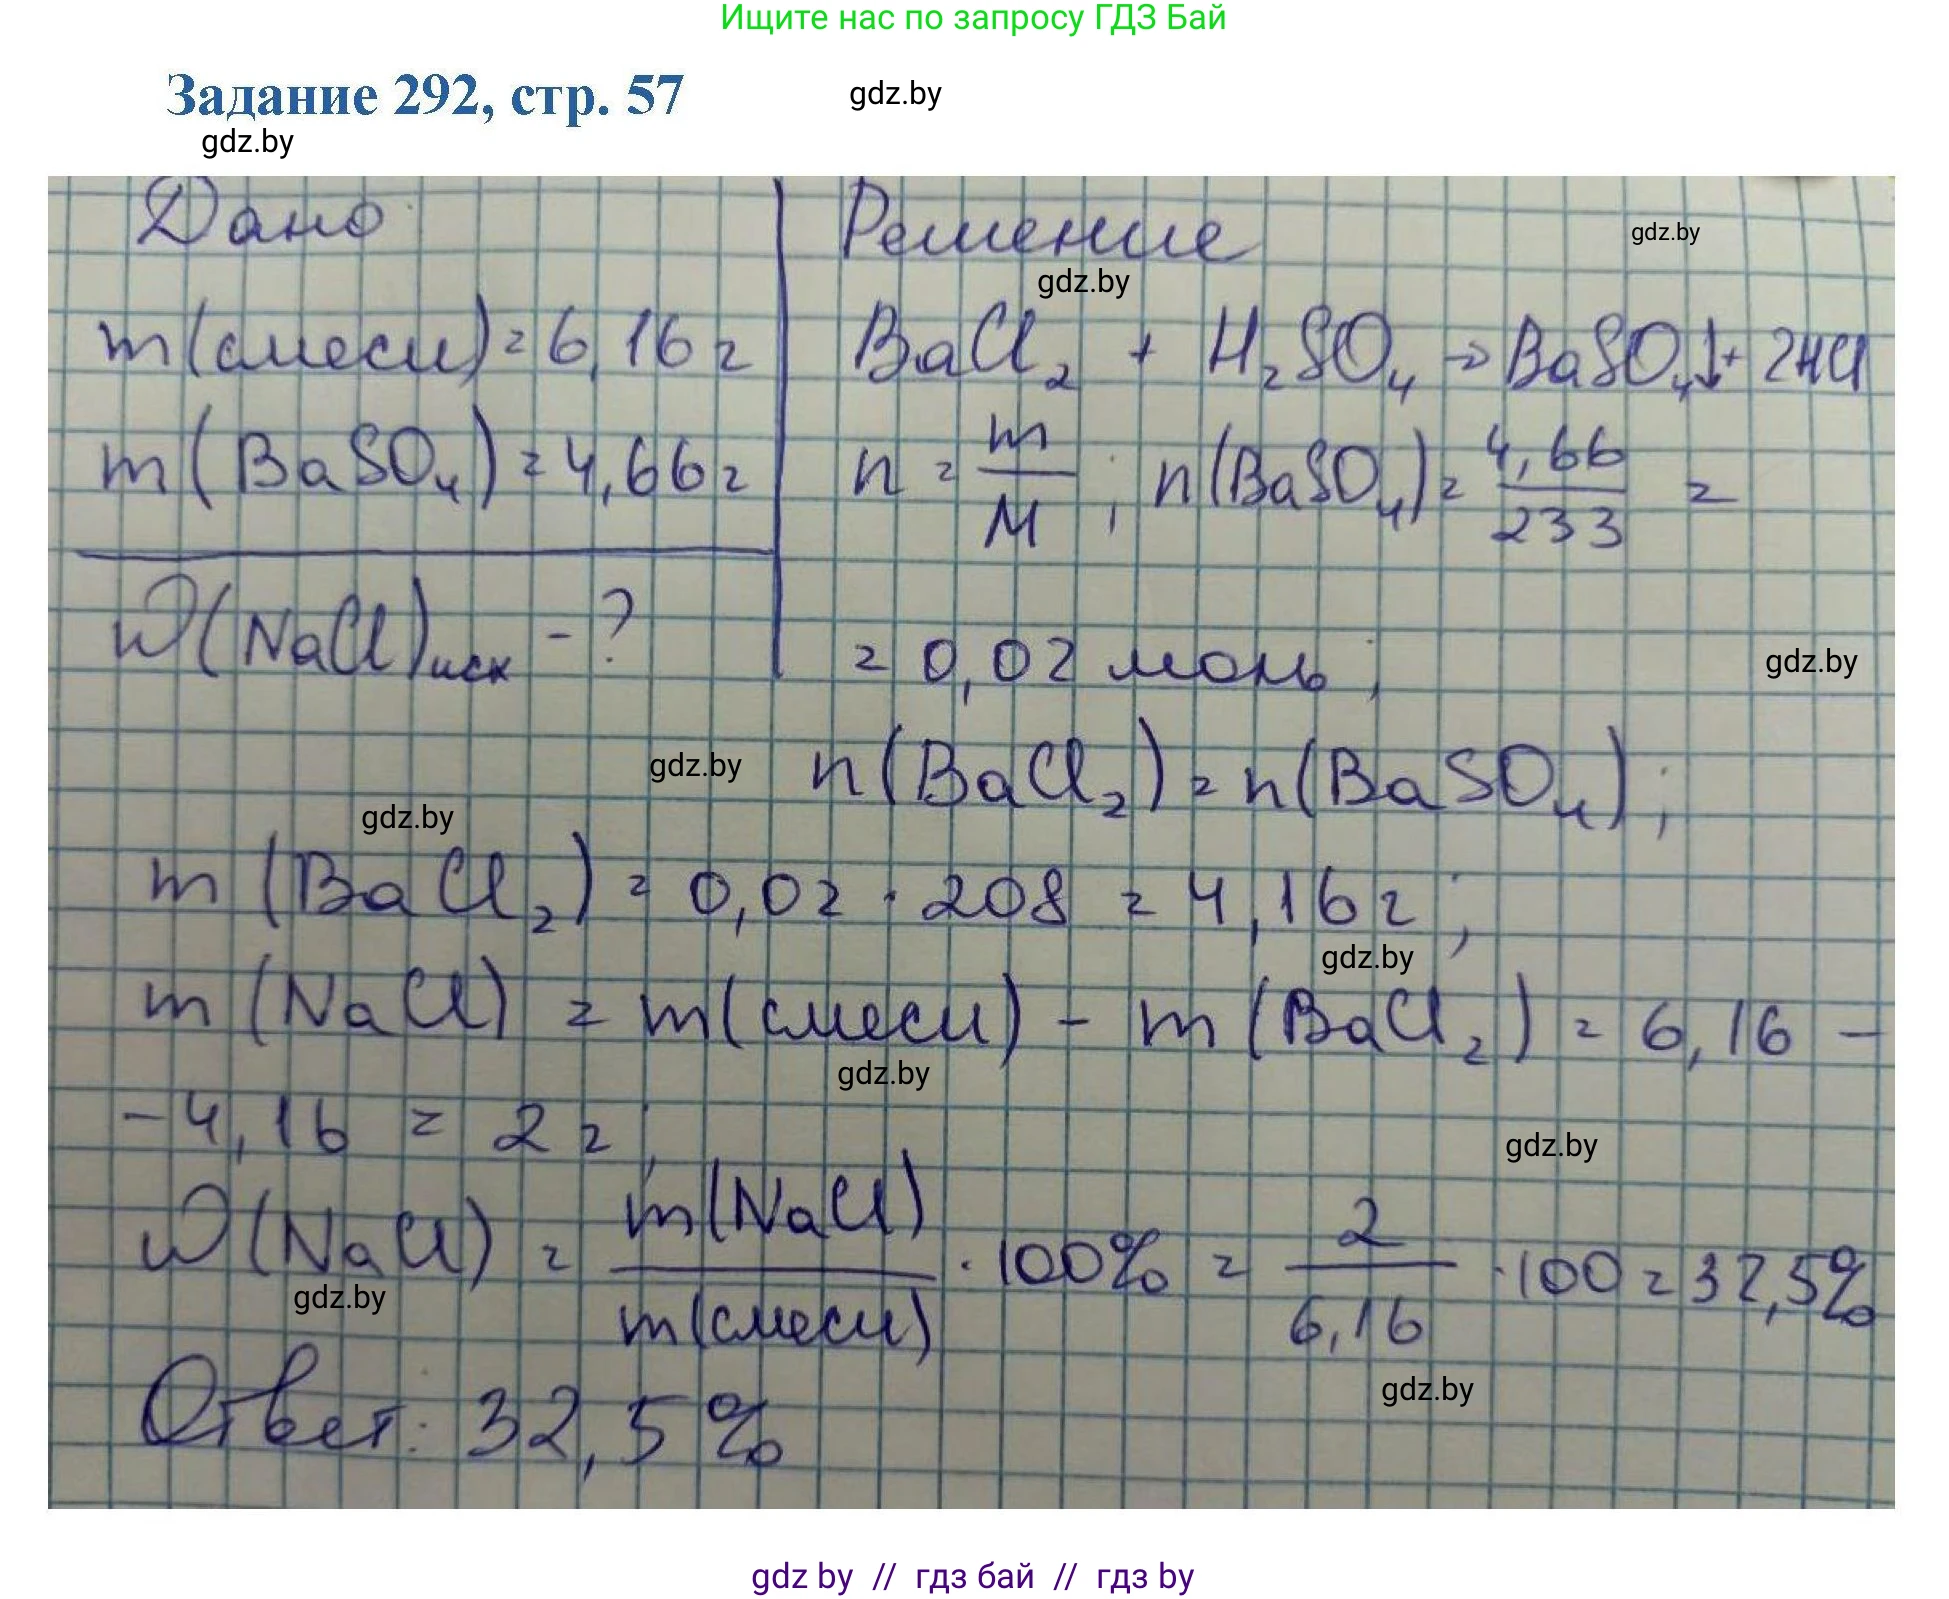 Ищите нас по запросу ГДЗ Бай
Задание 292, стр. 57
gdz.by
gdz.by
Дано
Решение
gdz.by
gdz.by
m(смеси)=6,16 г
BaCl₂ + H₂SO₄ → BaSO₄↓+ 2HCl
m(BaSO₄)=4,66 г
n = m/M ; n(BaSO₄)= 4,66/233 =
w(NaCl)иск - ?
= 0,02 моль;
gdz.by
gdz.by
n(BaCl₂)=n(BaSO₄);
gdz.by
m(BaCl₂)= 0,02 · 208 = 4,16 г;
gdz.by
m(NaCl) = m(смеси) - m(BaCl₂) = 6,16 -
gdz.by
- 4,16 = 2 г;
gdz.by
w(NaCl) = m(NaCl)/m(смеси) · 100% = 2/6,16 · 100 = 32,5%
gdz.by
gdz.by
Ответ: 32,5%
gdz by // гдз бай // гдз by